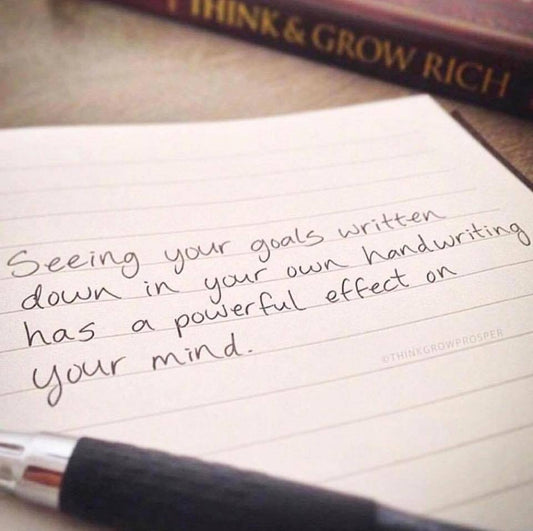 THINK & GROW RICH
Seeing your goals written
down in your own handwriting
has a powerful effect on
your mind.
©THINKGROWPROSPER